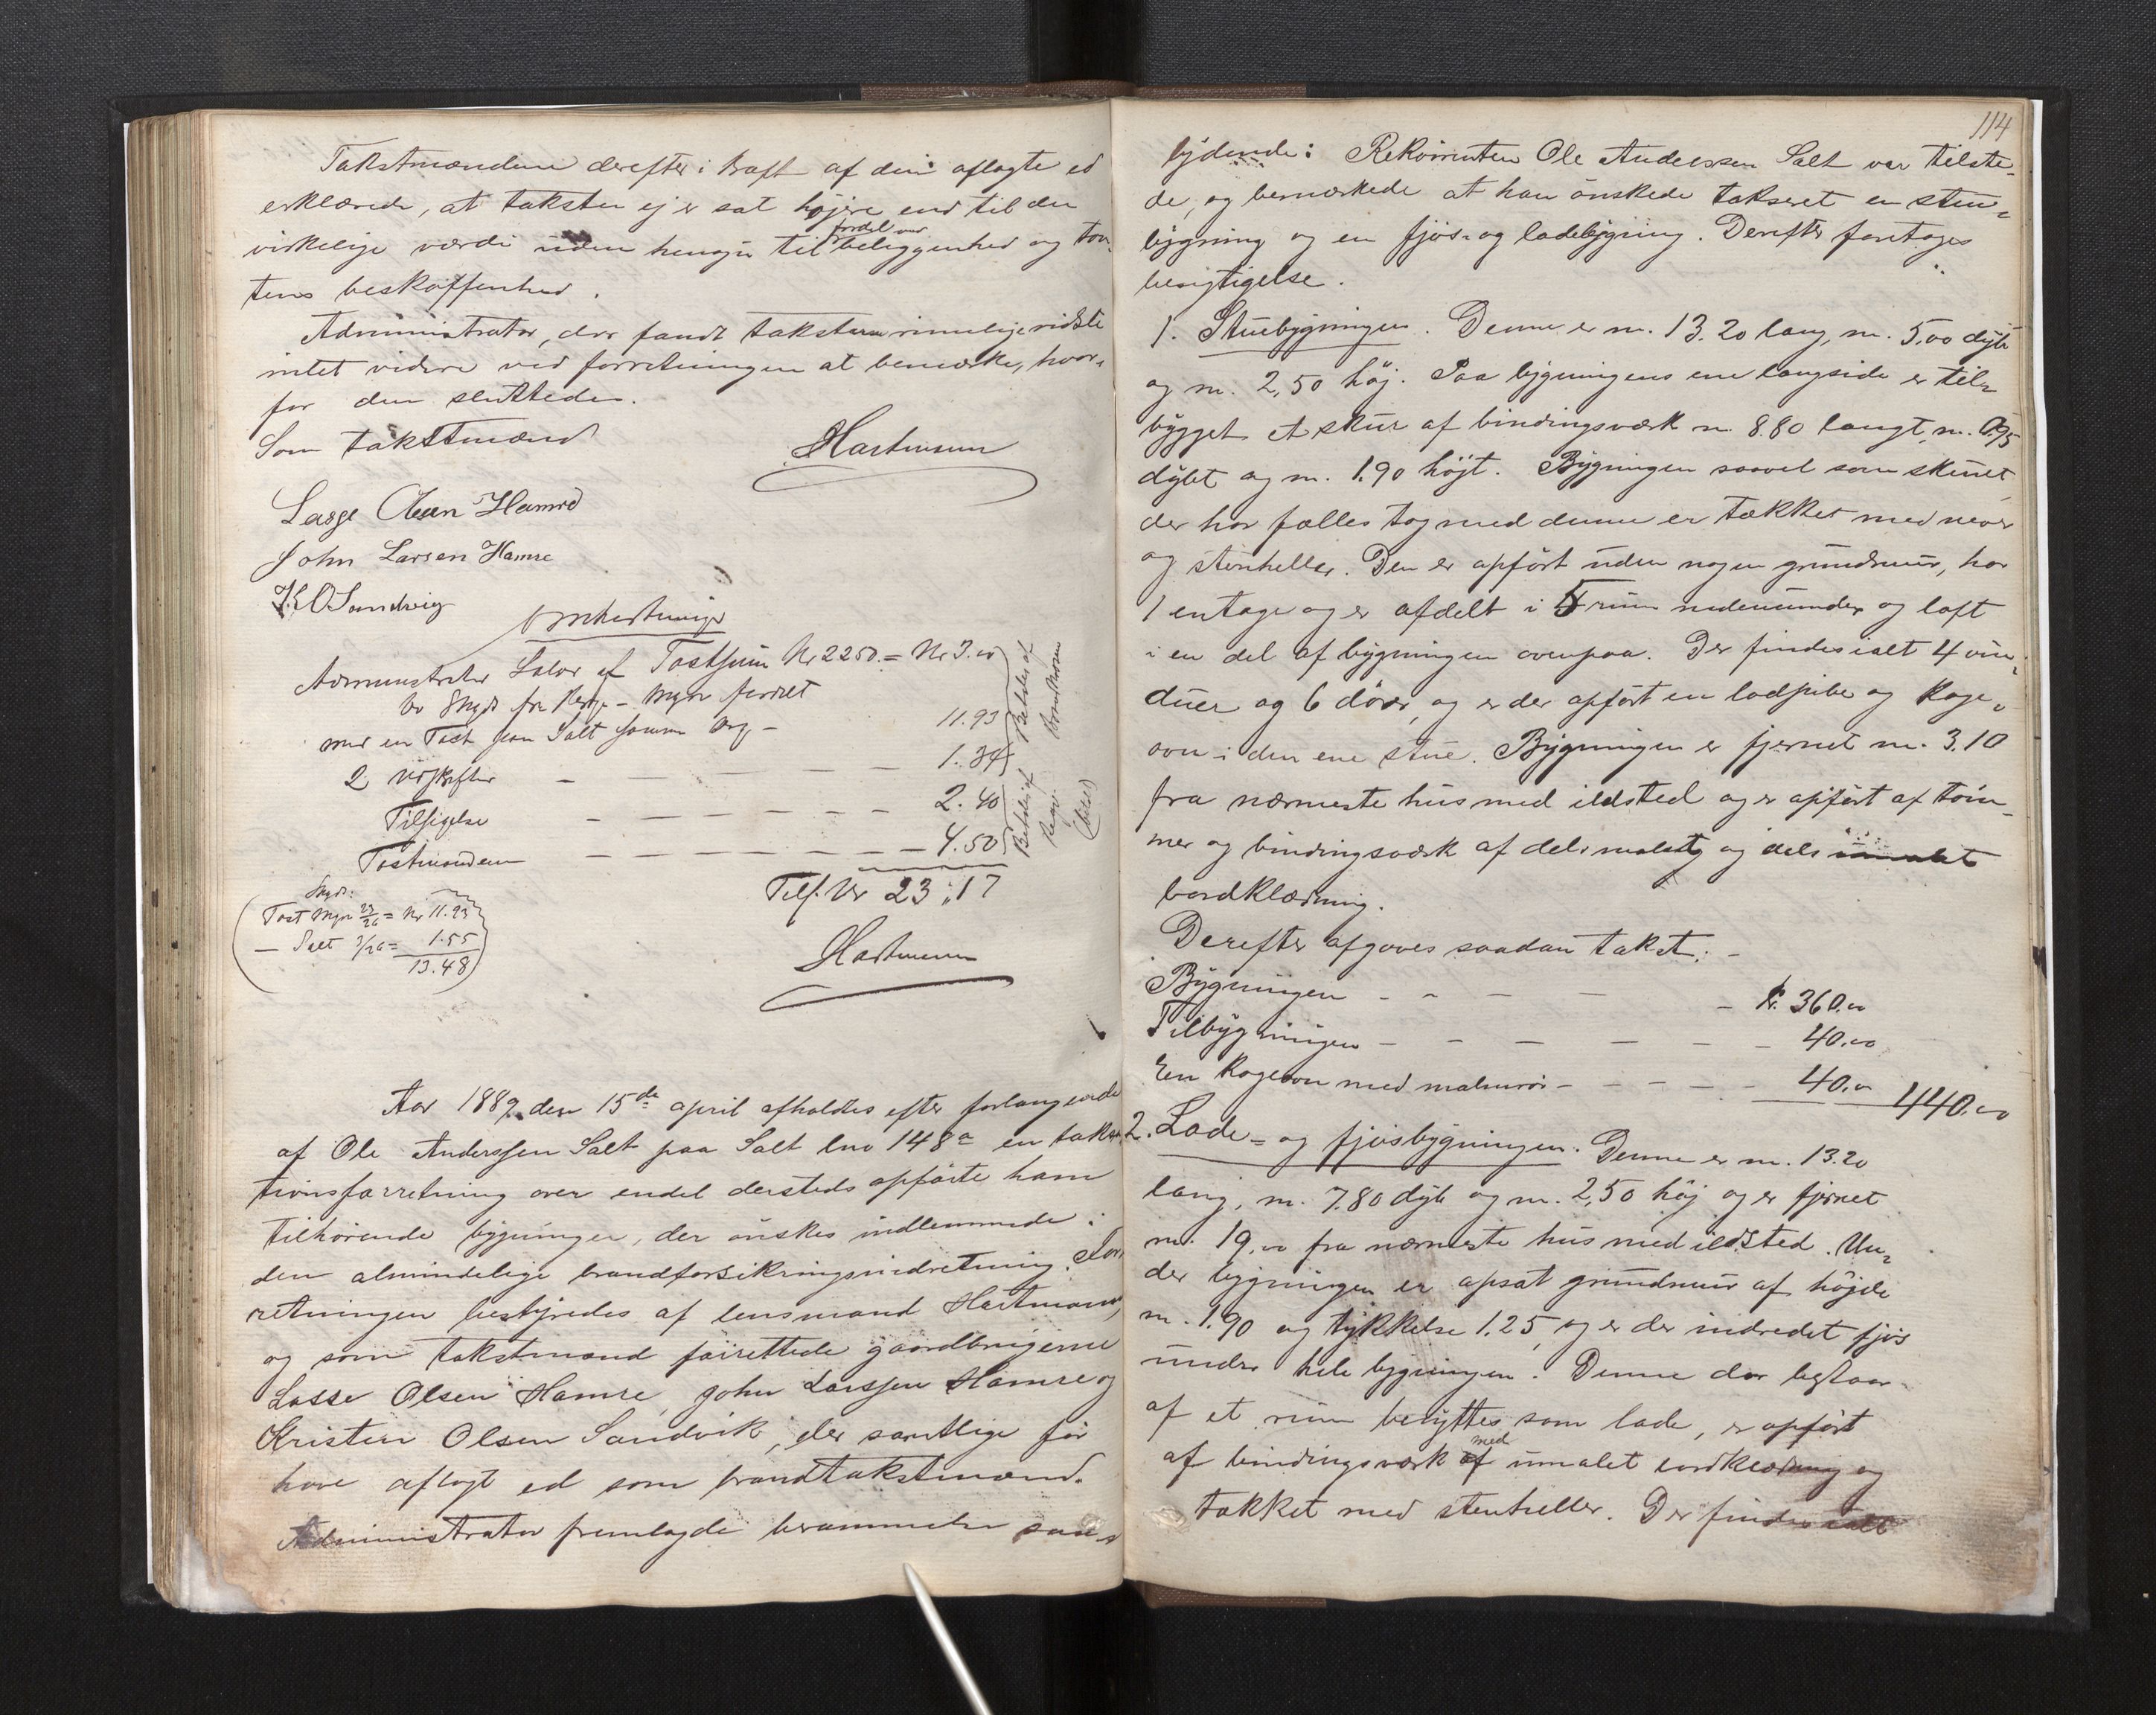 Takstmændene derefter i kraft af den aflagte ed
erklærede, at taksten ej er sat højere end til den
virkelige værdi uden hensyn til fordel ved beliggenhed og tom-
tens beskaffenhed.
Administrator, der fandt taksten rimelige vidste
intet videre ved forretningen at bemærke, hvor-
for den sluttedes.
Som takstmænd
Hartmann
Lasse Olsen Hamre
John Larsen Hamre
K. O Sandvig
Omkostninger
Administrator Salær af Taxtsum Kr 2250.= Kr 3.00
med en Taxt paa Salt samme Dag –
11.93
2 Udskrifter – – – – – 1.34
Tilsigelse – – – – – 2.40
Taxtmændene – – – – – 4.50
Tils. Kr 23.17
Skyds:
Taxt Myre 23/26 = Kr 11.93
— Salt 3/26 = 1.55
13.48
Hartmann
Aar 1889 den 15de april afholdtes efter forlangende
af Ole Anderssen Salt paa Salt lno 148a en taksa-
tionsforretning over endel dersteds opførte ham
tilhørende bygninger, der ønskes indlemmede i
den almindelige brandforsikringsindretning. For-
retningen bestyredes af lensmand Hartmann,
og som takstmænd foirettede gaardbrugerne
Lasse Olsen Hamre, John Larssen Hamre og
Kristen Olsen Sandvik, der samtlige før
have aflagt ed som brandtakstmænd.
Administrator fremlagde berammelse saa-
114
lydende: Rekvirenten Ole Anderssen Salt var tilste-
de, og bemærkede at han ønskede takseret en stue-
bygning og en fjøs- og ladebygning. Derefter foretoges
besigtigelse.
1. Stuebygningen. Denne er m. 13.20 lang, m. 5,00 dyb
og m. 2,50 høj. Paa bygningens ene langside er til-
bygget et skur af bindingsværk m. 8.80 langt, m. 0.95
dybt og m. 1.90 højt. Bygningen saavel som skuret,
der har fælles tag med denne er tækket med never
og stenheller. Den er opført uden nogen grundmur, har
1 entage og er afdelt i 5 rum nedenunder og loft
i en del af bygningen ovenpaa. Der findes ialt 4 vin-
duer og 6 døre, og er der opført en ladpibe og koge-
ovn i den ene stue. Bygningen er fjernet m. 3.10
fra nærmeste hus med ildsted og er opført af tøm-
mer og bindingsværk af dels malet og dels umalet
bordklædning.
Derefter afgaves saadan takst: –
Bygningen – – – – – Kr. 360.00
Tilbygningen – – – – – – 40.00
En kogeovn med malmrør – – – – – 40.00 440.00
2. Lade- og fjøsbygningen. Denne er m. 13.20
lang, m. 7.80 dyb og m. 2,50 høj og er fjernet
m. 19.00 fra nærmeste hus med ildsted. Un-
der bygningen er opsat grundmur af højde
m. 1.90 og tykkelse 1.25, og er der indredet fjøs
under hele bygningen. Denne der bestaar
af et rum benyttes som lade, er opført
af bindingsværk med umalet bordklædning og
tækket med stenheller. Der findes ialt